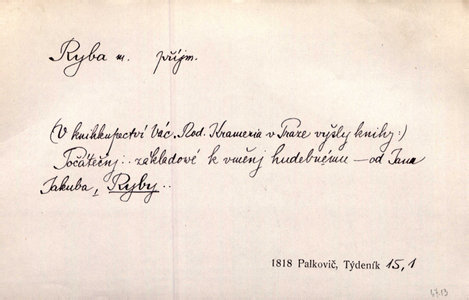 Ryba m. příjm.
(V knihkupectví Vác. Rod. Krameria v Praze vyšly knihy:)
Počátečnj.. základové k uměnj hudebnému — od Jana
Jakuba, Ryby..
1818 Palkovič, Týdeník 15,1